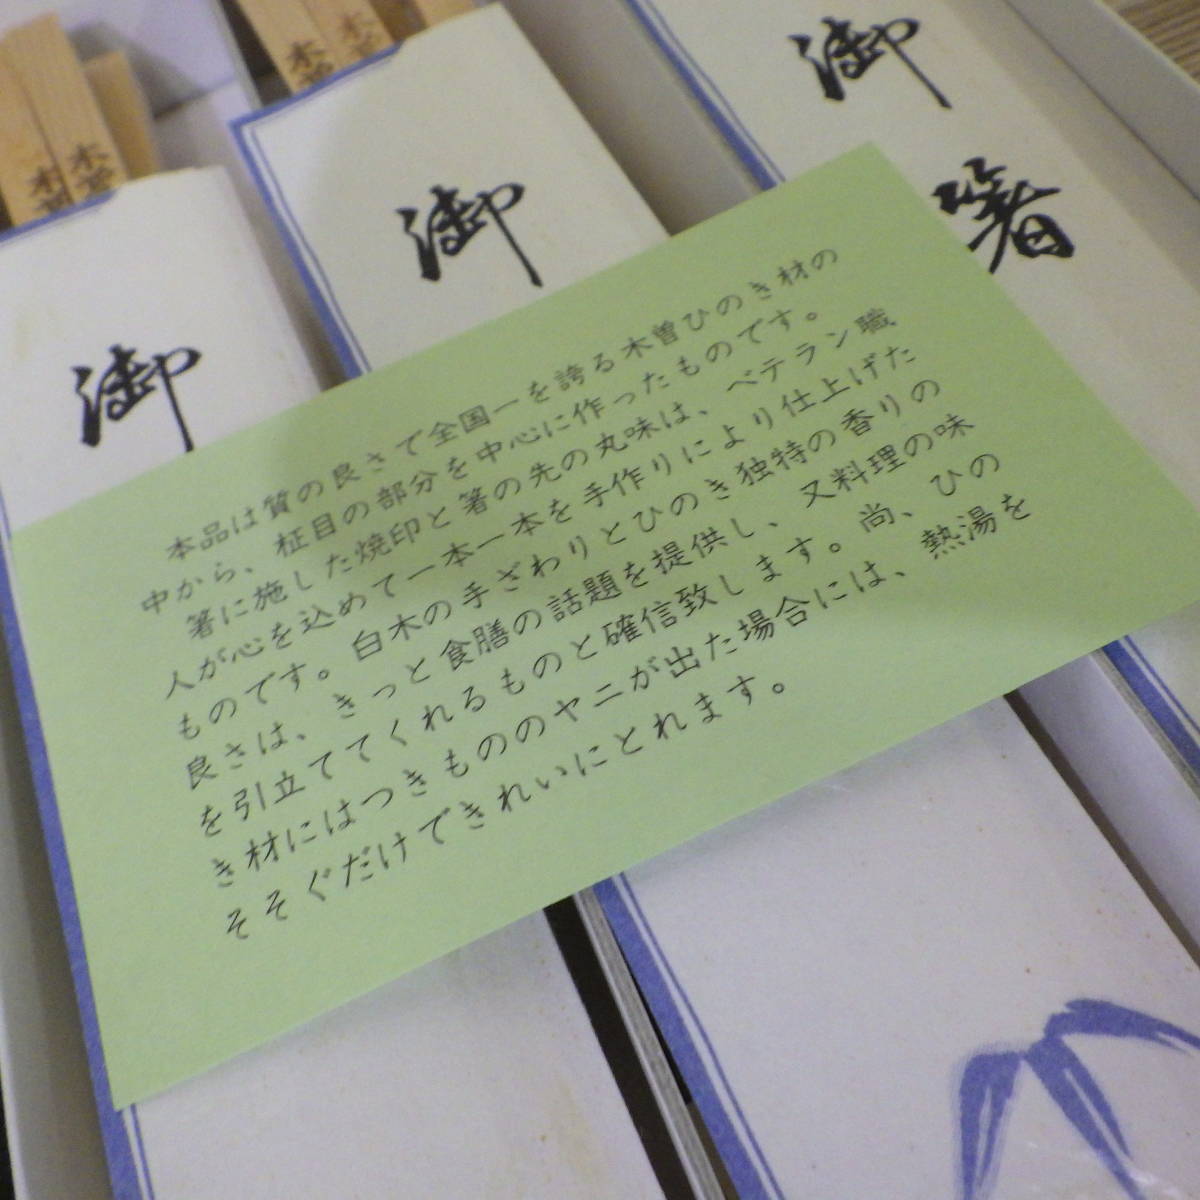 木曽
木曽
木曽
木曽
御
御
御
箸
本品は質の良さで全国一を誇る木曽ひのき材の
中から、柾目の部分を中心に作ったものです。
箸に施した焼印と箸の先の丸味は、ベテラン職
人が心を込めて一本一本を手作りにより仕上げた
ものです。白木の手ざわりとひのき独特の香りの
良さは、きっと食膳の話題を提供し、又料理の味
を引立ててくれるものと確信致します。尚、ひの
き材にはつきもののヤニが出た場合には、熱湯を
そそぐだけできれいにとれます。